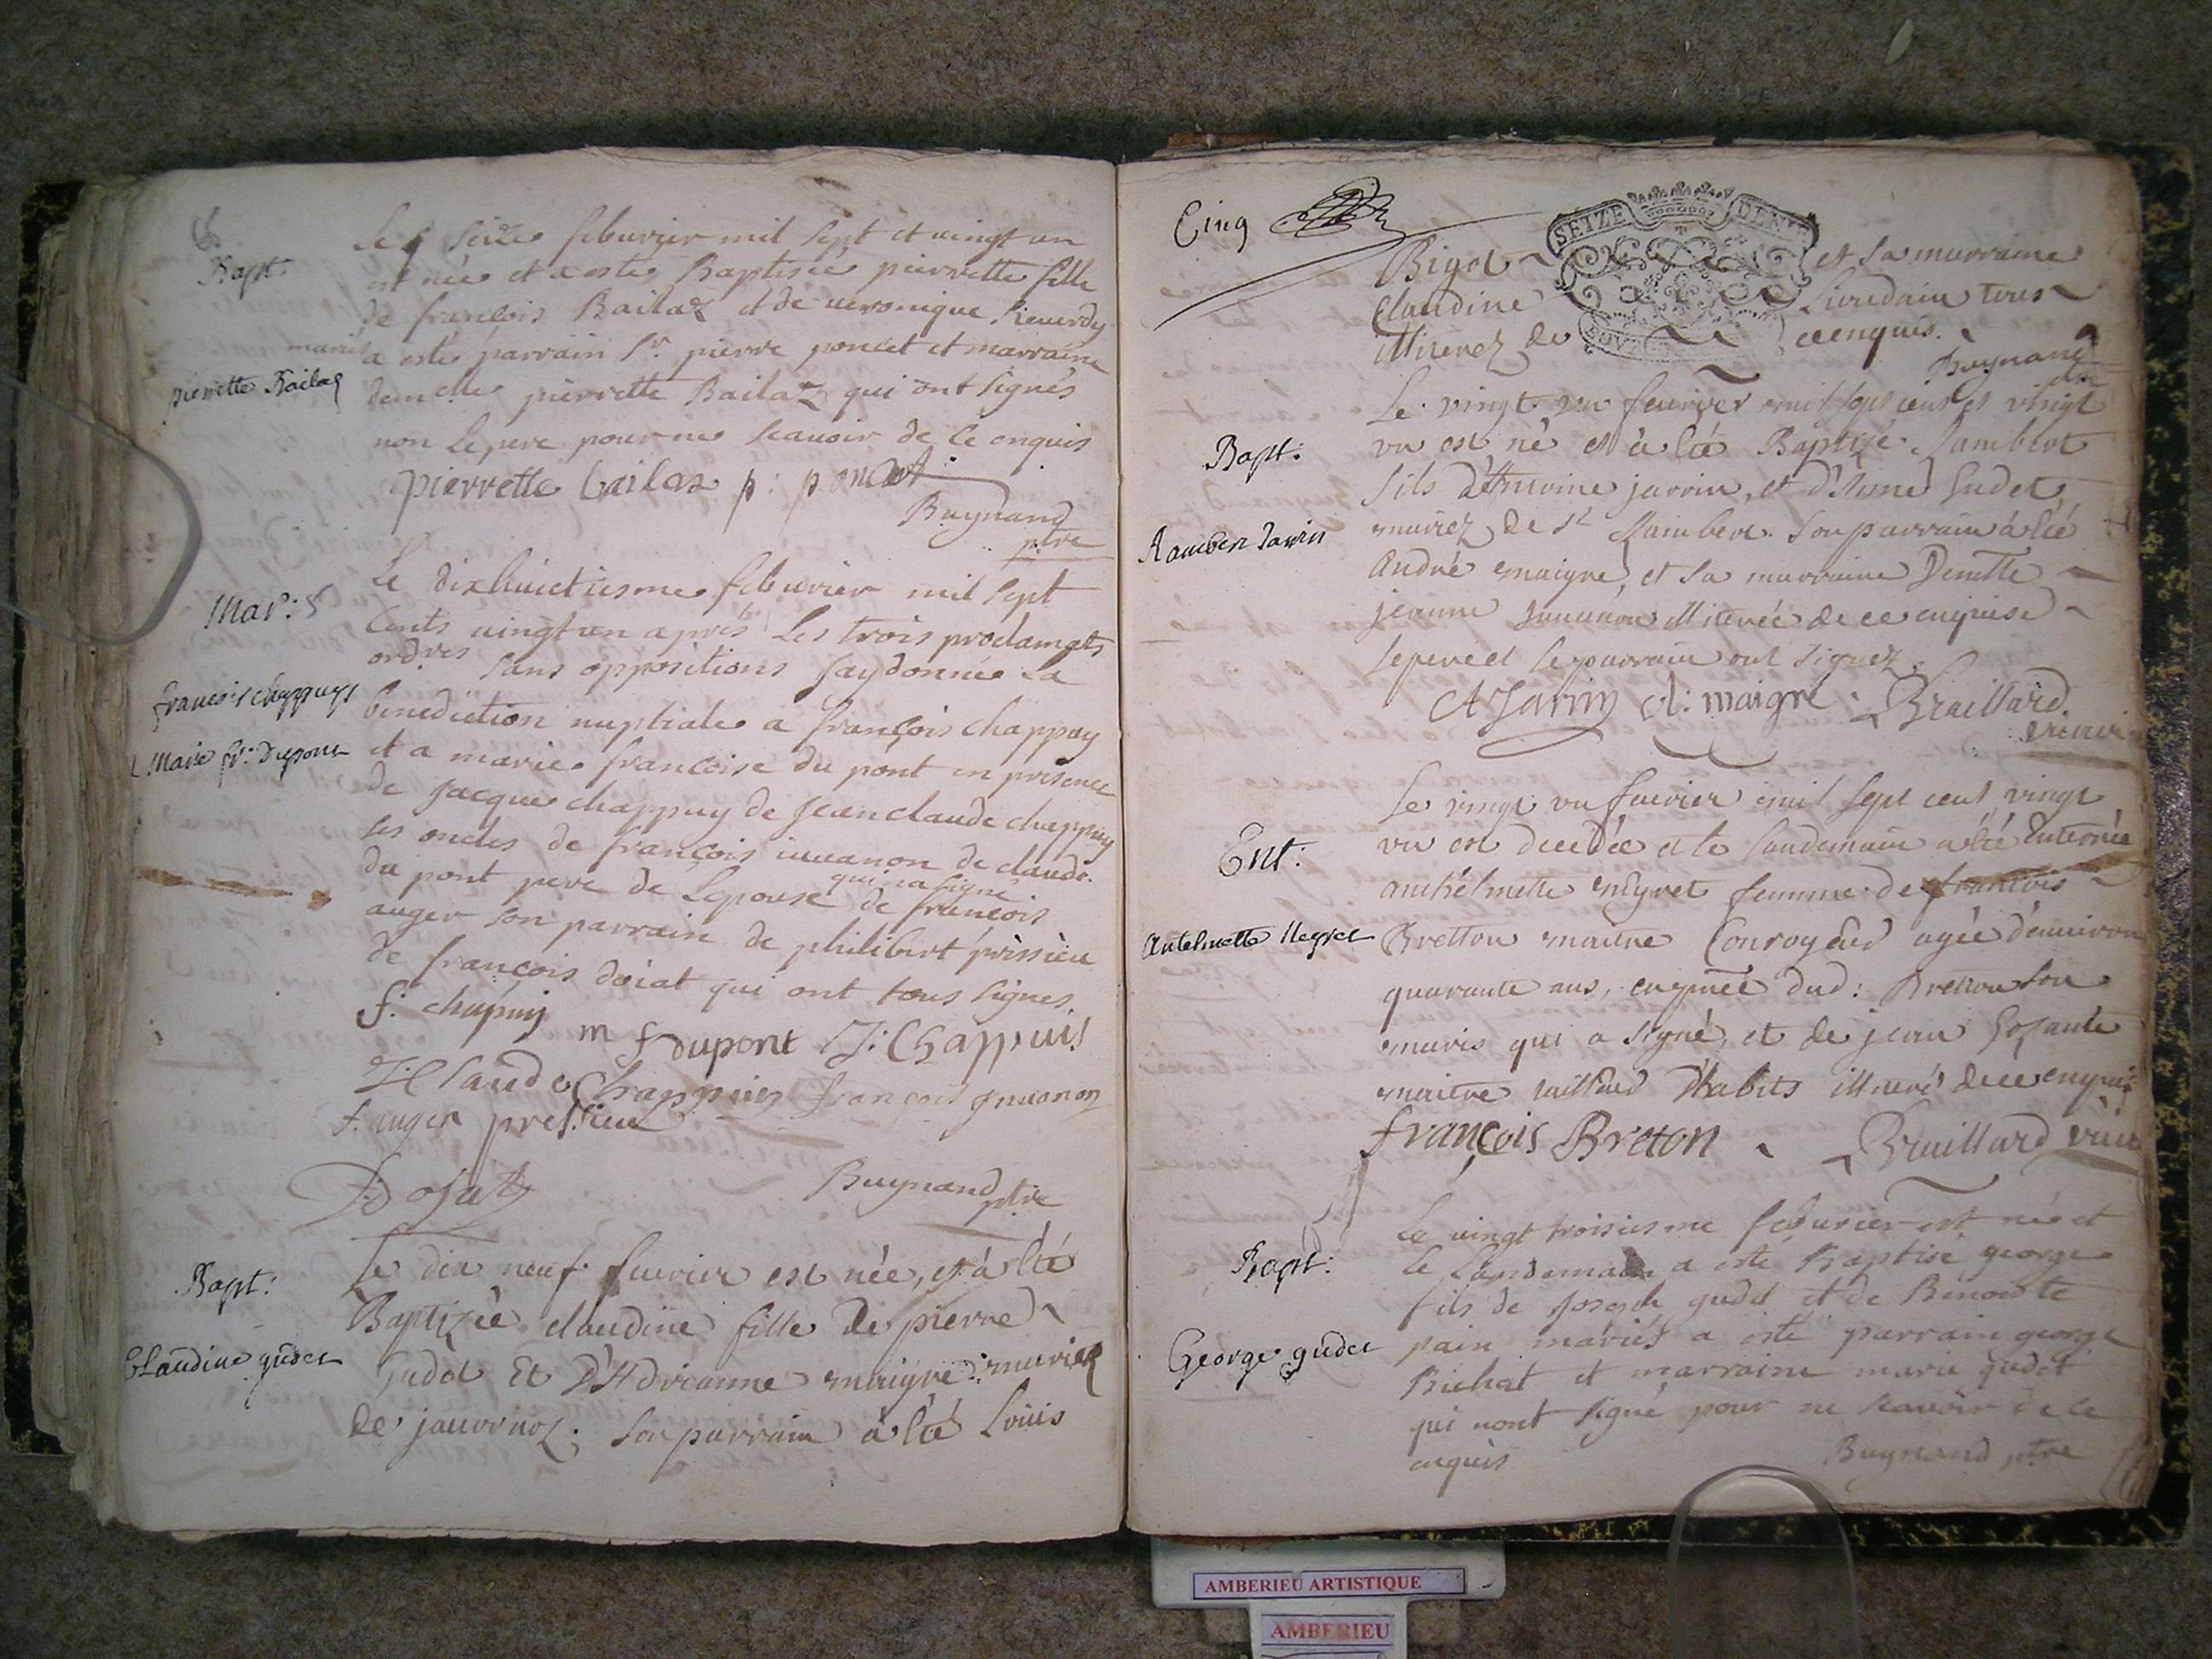 Bapt:
pierrette Bailaz
Le seize feburier mil sept et vingt un
est née et a estés Baptisée pierrette fille
de françois Bailaz et de ueronique
mariés a estés parrain Sr. pierre poncet et marraine
demelle pierrette Bailaz qui ont signés
non le pere pour ne scauoir de ce enquis
pierrette bailaz p: poncet
Buynand
ptre
Mar: 5
francois chappuys
Marie fr: Dupont
Le dixhuictiesme feburier mil sept
Cents uingt un apres les trois proclamats
ordres sans oppositions jay donnée la
benediction nuptiale a françois chappuy
et a marie françoise du pont en presence
de jacque chappuy de jean claude chappuy
ses oncles de françois iuuanon de claude
du pont pere de Lepouse qui na signé de francois
auger son parrain de philibert prissieu
de françois doiat qui ont tous signes
f: chapuy m f dupont J: Chappuis
J: Claude Chappuies françois juuanon
f. auger pressieu
F: Dojat Buynand ptre
Bapt:
Claudine gudet
Le dix neuf feurier est née, et à été
Baptizée claudine fille de pierre
Gudet Et D'Adrianne maigre mariez
de jauornoz; son parrain à été Louis
Cinq
SEIZE DENI
Bigot et sa marraine
Claudine Liuudain tous
illiterez de ce enquis.
Buynand
ptre
Bapt:
Rambert Jarrin
Le vingt un feurier mil sept cent et vingt
un est né et à été Baptizé Rambert
fils d'Antoine jarrin, et d'Anne Gudet
mariez de St Rambert. Son parrain à été
André maigre, et sa marraine Denette
jeanne Juuanon illiterée de ce enquise
le pere et le parrain ont signez.
A Jarrin A: maigre Braillard
vicair
Ent:
Antelmette Neyret
Le vingt un feurier mil sept cent vingt
un est decedée et le landemain a été Enterrée
anthelmette neyret femme de francois
Bretton maitre Conroyeur agée d'enuiron
quarante ans, en présce dud: Bretton son
maris qui a signé, et de jean
maitre tailleur d'habits illiteré de ce enquis
françois Breton Braillard vic
Bapt:
George gudet
Le uingt troisiesme feburier est né et
le Landemain a esté Baptisé george
fils de Joseph gudet et de Benoiste
pain mariés a esté parrain george
Bichat et marraine marie gudet
qui nont signé pour ne scauoir de ce
enquis Buynand ptre
AMBERIEU ARTISTIQUE
AMBERIEU